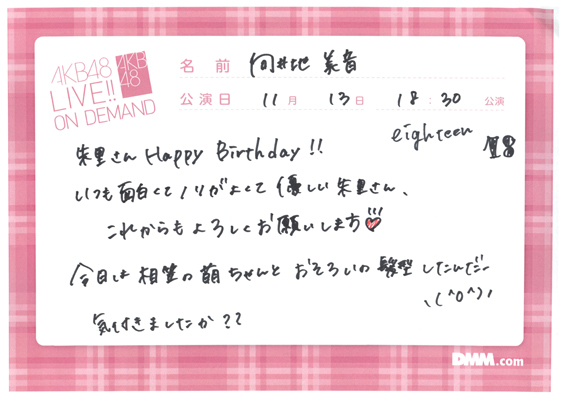 AKB48
LIVE!!
ON DEMAND
AKB
48
名前 向井地 美音
公演日 11月 13日 18:30 公演
eighteen 18
朱里さん Happy Birthday!!
いつも面白くてノリがよくて優しい朱里さん、
これからもよろしくお願いします
今日は相笠の萌ちゃんとおそろいの髪型したんだー
\(^o^)/
気づきましたか??
DMM.com